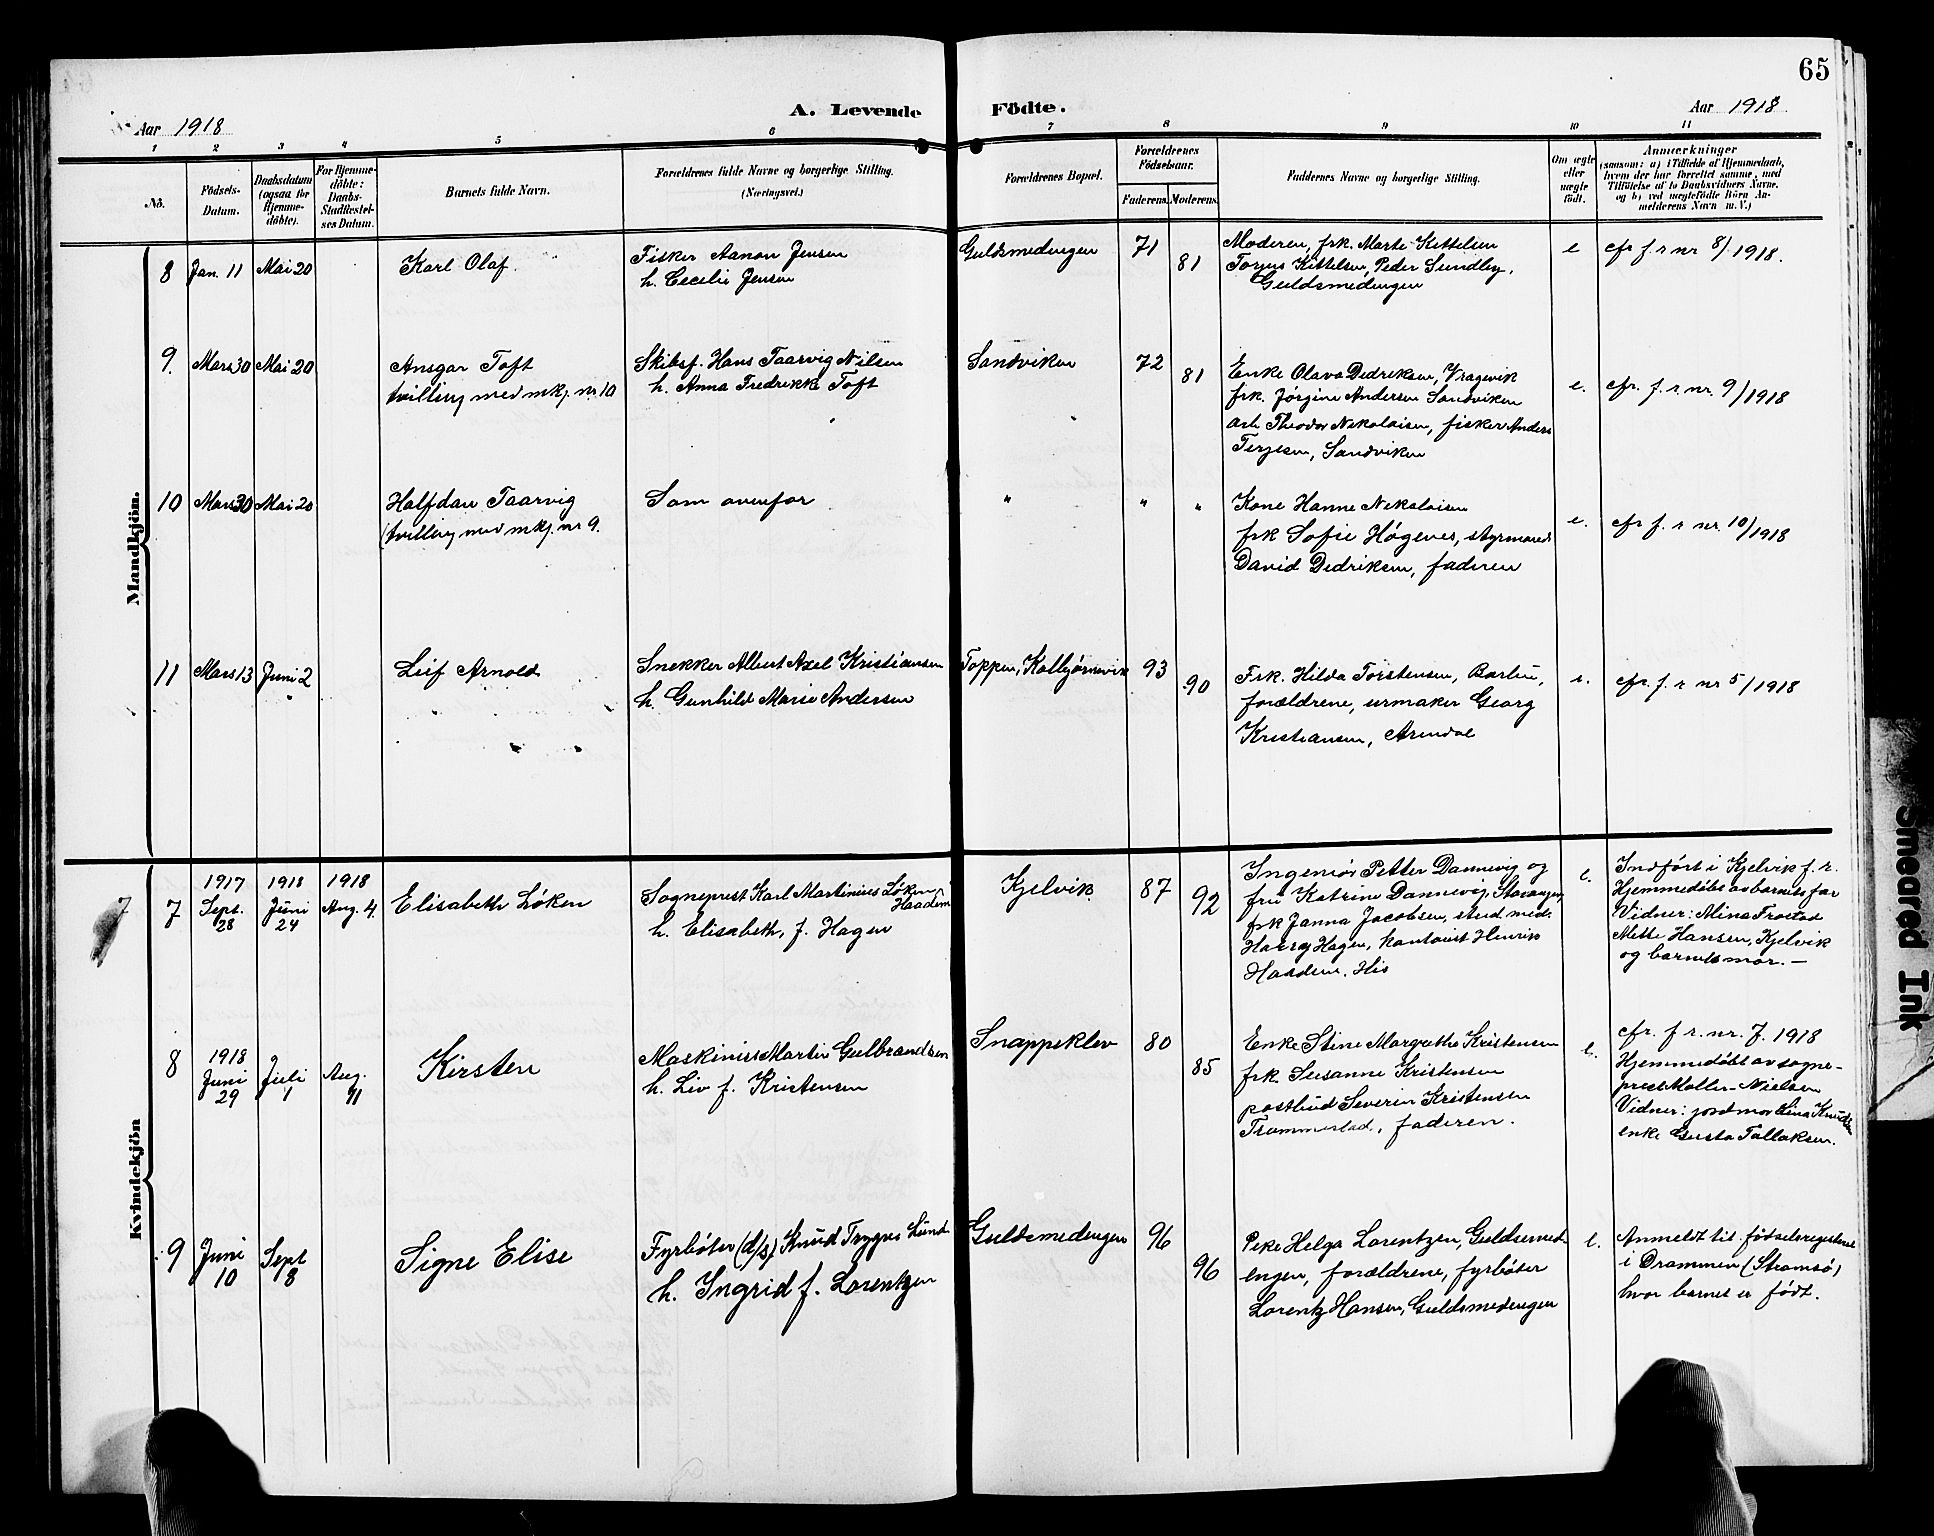 65
A. Levende Födte.
Aar 1918
Aar 1918
1 2 3 4 5 6 7 8 9 10 11
No.
Födsels-Datum.
Daabsdatum (ogsaa for Hjemmedöbte).
For Hjemmedöbte: Daabs-Stadfæstelses Datum.
Barnets fulde Navn.
Forældrenes fulde Navne og borgerlige Stilling. (Næringsvei.)
Forældrenes Bopæl.
Forældrenes Födselsaar.
Faderens. Moderens.
Faddernes Navne og borgerlige Stilling.
Om ægte eller uægte födt.
Anmærkninger
(saasom: a) i Tilfælde af Hjemmedaab, hvem der har forrettet samme, med Tilföielse af to Daabsvidners Navne, og b) ved uægtefödte Börn Anmelderens Navn m. V.)
Mandkjön.
8 Jan. 11 Mai 20
Karl Olaf.
Fisker Aanon Jensen
h. Cecilie Jensen
Guldsmedengen
71
81
Moderen, frk. Marte Kittelsen
Torjus Kittelsen, Peder Sundby,
Guldsmedengen
e
cfr f. r nr 8/1918.
9. Mars 30 Mai 20
Ansgar Toft
tvilling med mkj. nr. 10
Skibsf. Hans Taarvig Nilsen
h. Anna Fredrikke Toft
Sandviken
72
81
Enke Olava Dedriksen, Vragevik
frk. Jørgine Andersen Sandviken
arb. Theodor Nikolaisen, fisker Anders
Terjesen, Sandviken
e.
cfr. f. r. nr. 9/1918
10 Mars 30 Mai 20
Halfdan Taarvig
(tvilling med mkj. nr 9.
Som ovenfor
" " "
Kone Hanne Nikolaisen
frk Sofie Høgevei, styrmand
David Dedriksen, faderen
e.
cfr f. r nr. 10/1918
11 Mars 13 Juni 2
Leif Arnold
Snekker Albert Axel Kristiansen
h. Gunhild Marie Andersen
Toppen, Kolbjørnsvik
93
90
Frk. Hilda Torstensen, Barbu,
forældrene, urmaker Georg
Kristiansen, Arendal
e.
cfr. f. r nr 5/1918
Kvindekjön
7
7 1917 Sept. 28
1918 Juni 24
1918 Aug. 4.
Elisabeth Løken
Sogneprest Karl Martinius Løken
Haadem
h. Elisabeth, f. Hagen
Kjelvik
87
92
Ingeniør Petter Dannevig og
fru Katrine Dannevig, Stavanger,
frk Janna Jacobsen, stud. med.
Harry Hagen, kontorist Henrik
Haadem. His
e.
Indført i Kjelvik f. r.
Hjemmedøbt av barnets far
Vidner: Mina Frostad
Mette Hansen, Kjelvik
og barnets mor. —
8 1918 Juni 29
Juli 1
Aug. 11
Kirsten
Maskinist Martin Gulbrandsen
h. Liv f. Kristensen
Snappeklev
80
85
Enke Stine Margrethe Kristensen
frk. Susanne Kristensen
postbud Severin Kristensen
Trommestad, faderen.
e.
cfr. f. r. nr. 7. 1918
Hjemmedøbt av sogne-
prest Møller-Nielsen
Vidner: jordmor Lina Knudsen
enke Gusta Tallaksen.
9 Juni 10
Sept 8
Signe Elise
Fyrbøter (d/s) Knud Trygve Lund
h. Ingrid f. Lorentzen
Guldsmedengen
96
96
Pike Helga Lorentzen, Guldsmed-
engen, forældrene, fyrbøter
Lorentz Hansen, Guldsmedengen
e.
Anmeldt til fødselsregisteret
i Drammen (Strømsø)
hvor barnet er født.
Smeared Ink